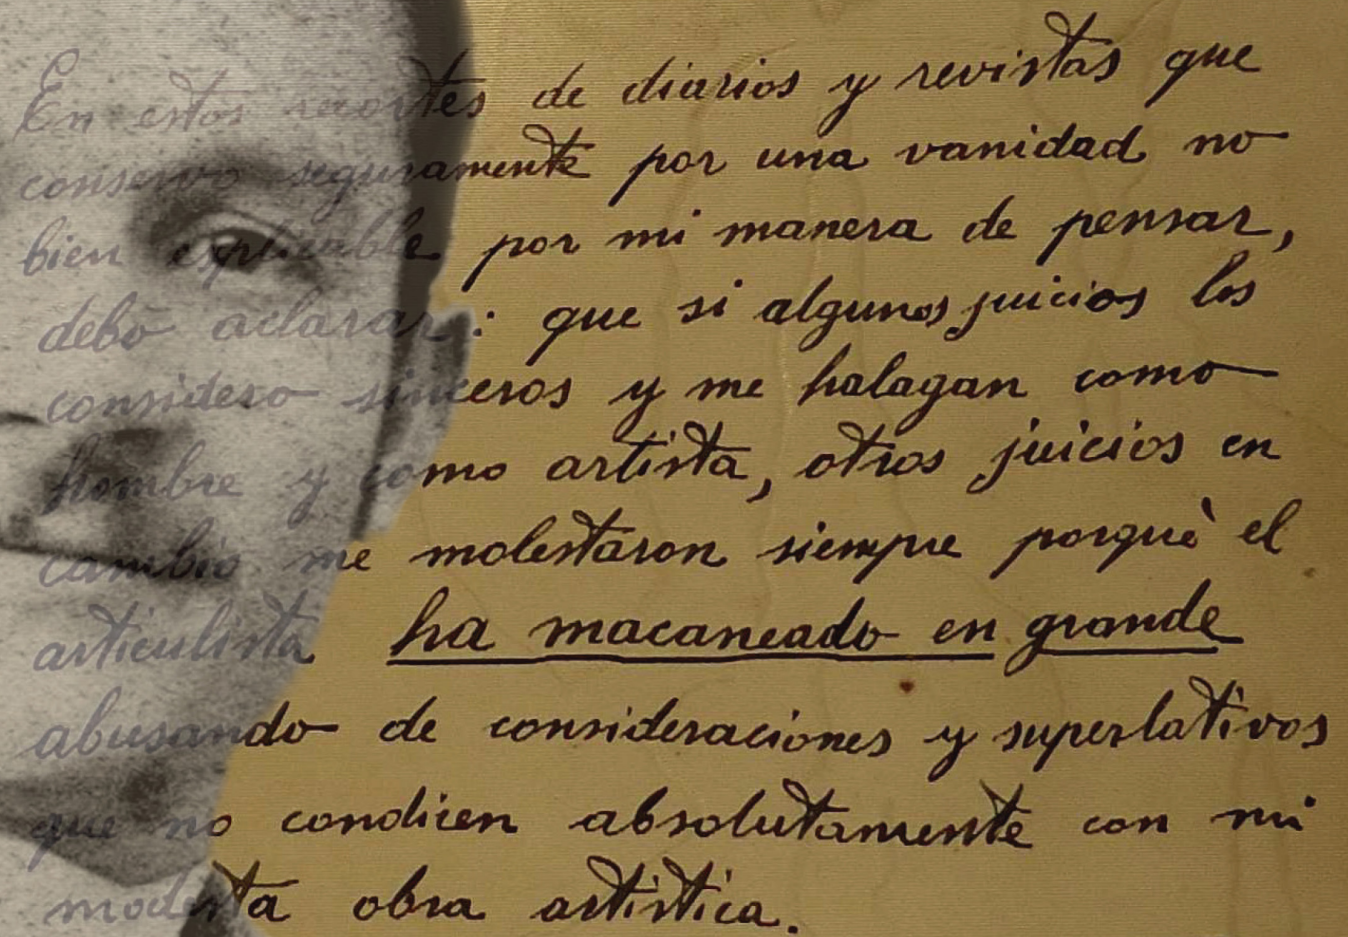 En estos recortes de diarios y revistas que
conservo seguramente por una vanidad no
bien explicable por mi manera de pensar,
debo aclarar: que si algunos juicios los
considero sinceros y me halagan como
hombre y como artista, otros juicios en
cambio me molestaron siempre porquè el
articulista ha macaneado en grande
abusando de consideraciones y superlativos
que no condicen absolutamente con mi
modesta obra artistica.